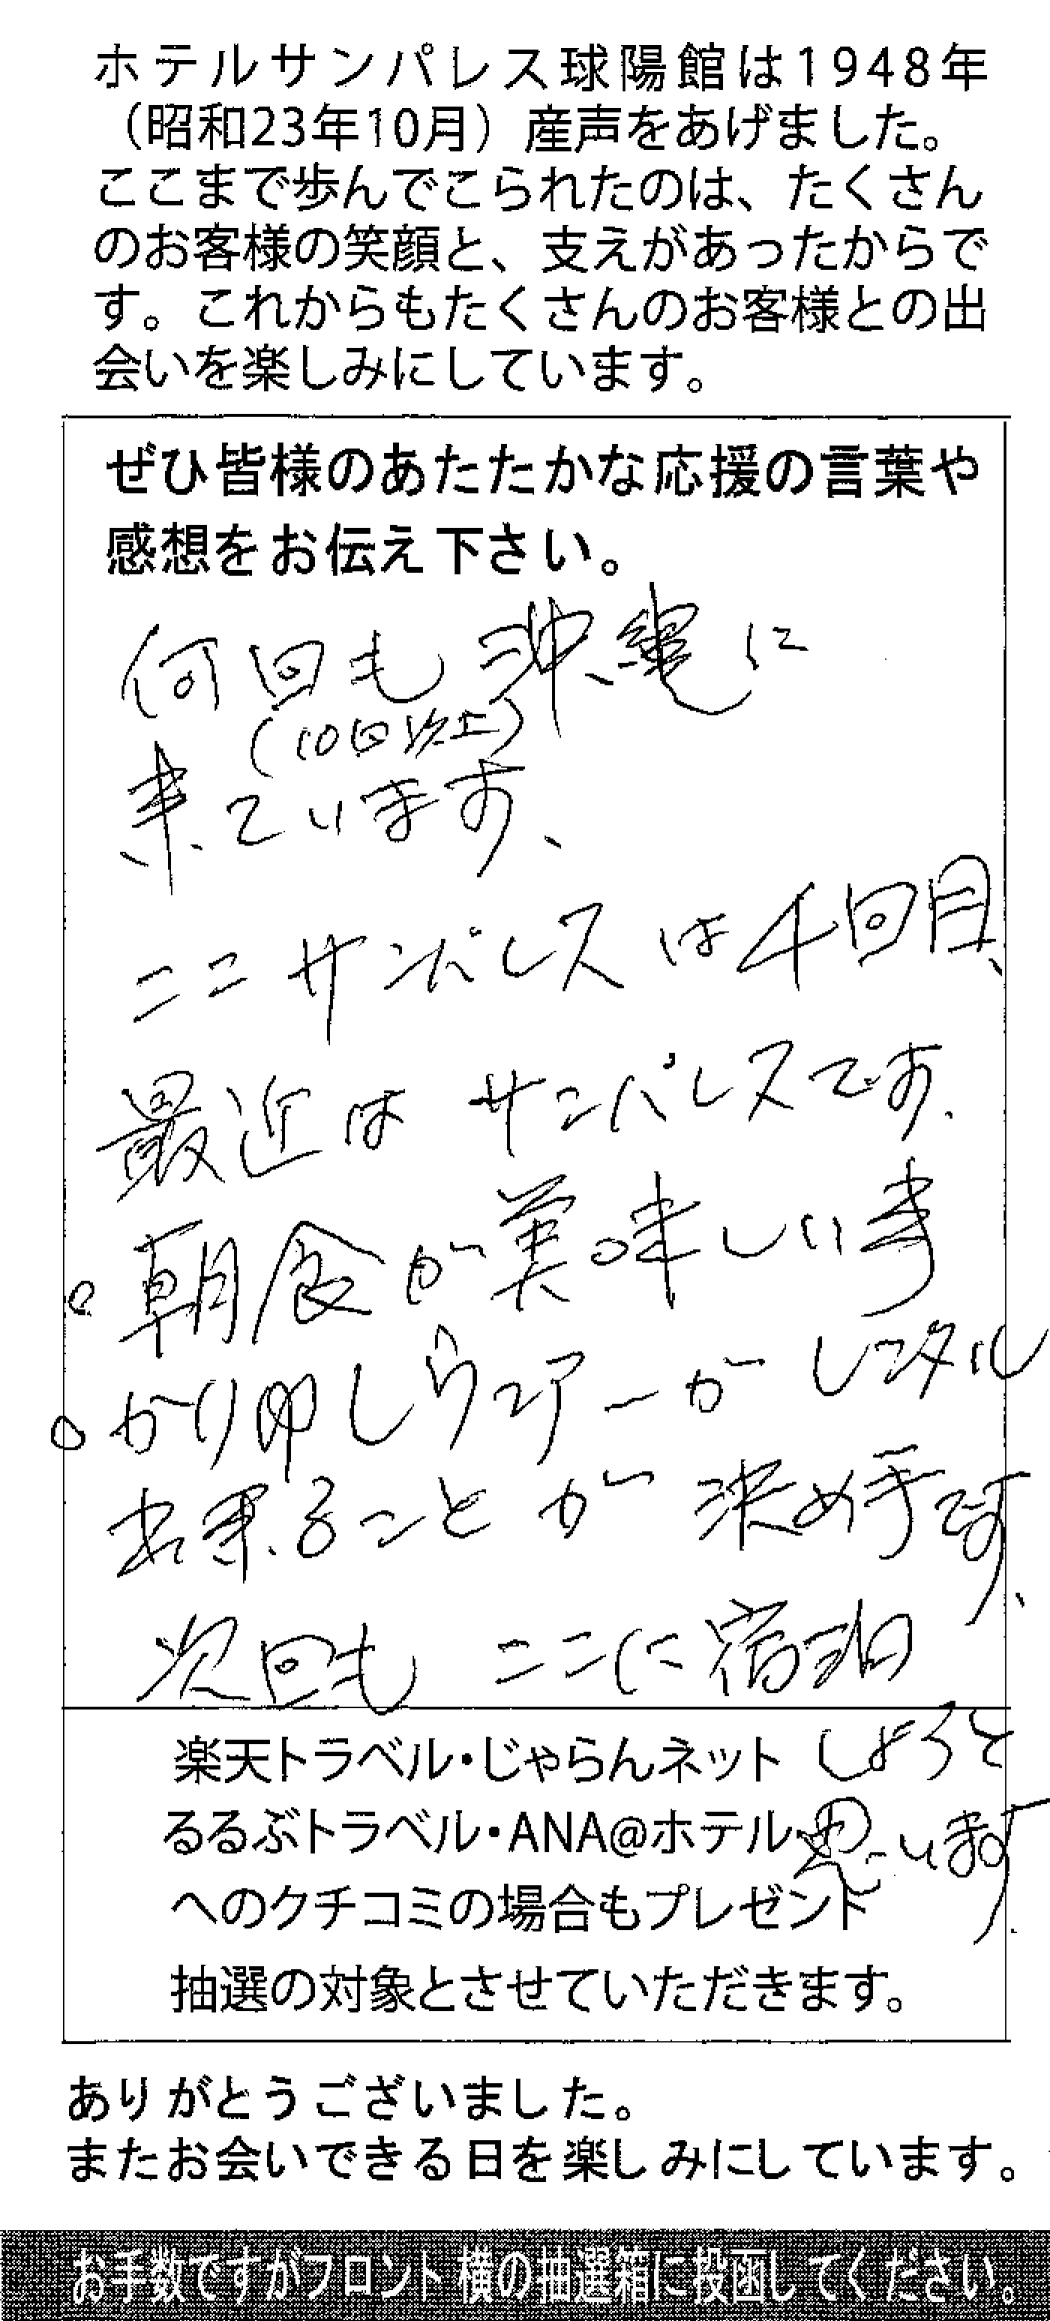 ホテルサンパレス球陽館は1948年
（昭和23年10月）産声をあげました。
ここまで歩んでこられたのは、たくさん
のお客様の笑顔と、支えがあったからで
す。これからもたくさんのお客様との出
会いを楽しみにしています。
ぜひ皆様のあたたかな応援の言葉や
感想をお伝え下さい。
何回も沖縄に
(10回以上)
来ています、
ここサンパレスは4回目、
最近はサンパレスです.
○朝食が美味しい事
○かりゆしウエアーがレンタル
出来ることが決め手です、
次回もここに宿泊
しようと
思います.
楽天トラベル・じゃらんネット
るるぶトラベル・ANA@ホテル
へのクチコミの場合もプレゼント
抽選の対象とさせていただきます。
ありがとうございました。
またお会いできる日を楽しみにしています。
お手数ですがフロント横の抽選箱に投函してください。